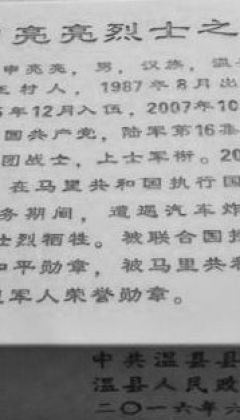 申亮亮烈士之
申亮亮，男，汉族，温
王村人，1987年8月出
5年12月入伍，2007年10
国共产党，陆军第16集
团战士，上士军衔。20
在马里共和国执行国
务期间，遭遇汽车炸
壮烈牺牲。被联合国授
和平勋章，被马里共和
军人荣誉勋章。
中共温县县
温县人民政
二〇一六年六